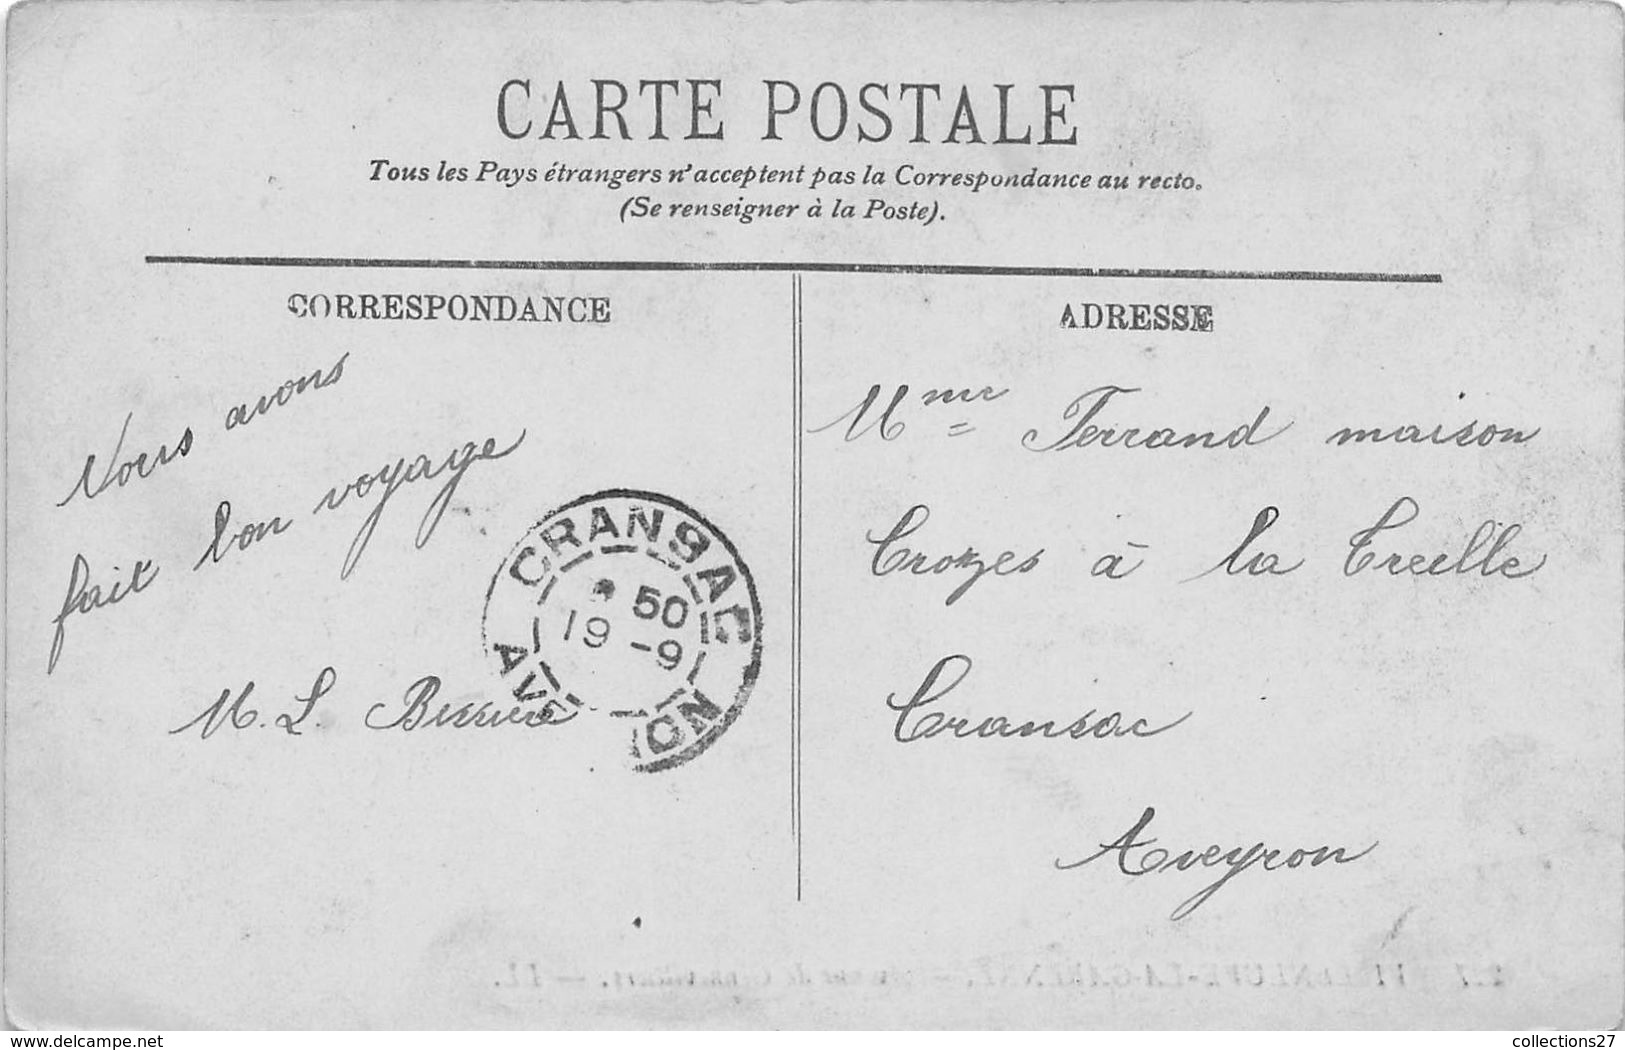 CARTE POSTALE
Tous les Pays étrangers n'acceptent pas la Correspondance au recto.
(Se renseigner à la Poste).
CORRESPONDANCE
Nous avons
fait bon voyage
M. L. Bessière
CRANSAC
50
19 -9
AVEYRON
ADRESSE
Mme Ferrand maison
Crozes à la Treille
Cransac
Aveyron
VILLENEUVE-LA-GARENNE. — de Gennevilliers. — LL.
www.delcampe.net
collections27